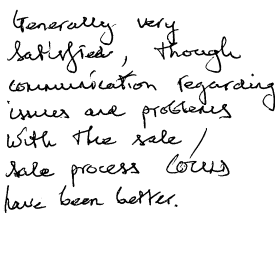 Generally very
satisfied, though
communication regarding
issues and problems
with the sale /
sale process could
have been better.